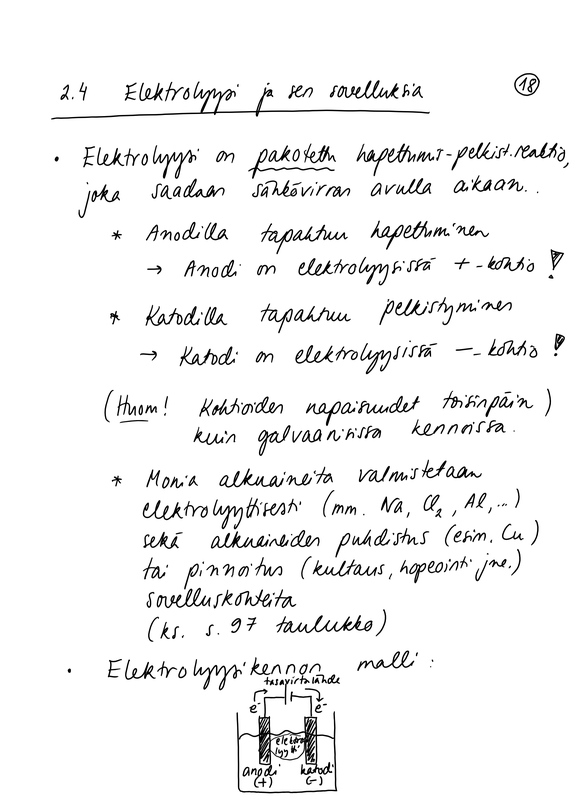 2.4 Elektrolyysi ja sen sovelluksia
18
• Elektrolyysi on pakotettu hapettumis-pelkist.reaktio,
joka saadaan sähkövirran avulla aikaan..
* Anodilla tapahtuu hapettuminen
→ Anodi on elektrolyysissä +-kohtio !
* Katodilla tapahtuu pelkistyminen
→ Katodi on elektrolyysissä –-kohtio !
(Huom! Kohtioiden napaisuudet toisinpäin)
kuin galvaanisissa kennoissa.
* Monia alkuaineita valmistetaan
elektrolyyttisesti (mm. Na, Cl₂, Al,...)
sekä alkuaineiden puhdistus (esim. Cu)
tai pinnoitus (kultaus, hopeointi jne.)
sovelluskohteita
(ks. s. 97 taulukko)
• Elektrolyysikennon malli:
tasavirtalähde
e⁻ e⁻
elektro
lyytti
anodi katodi
(+) (–)